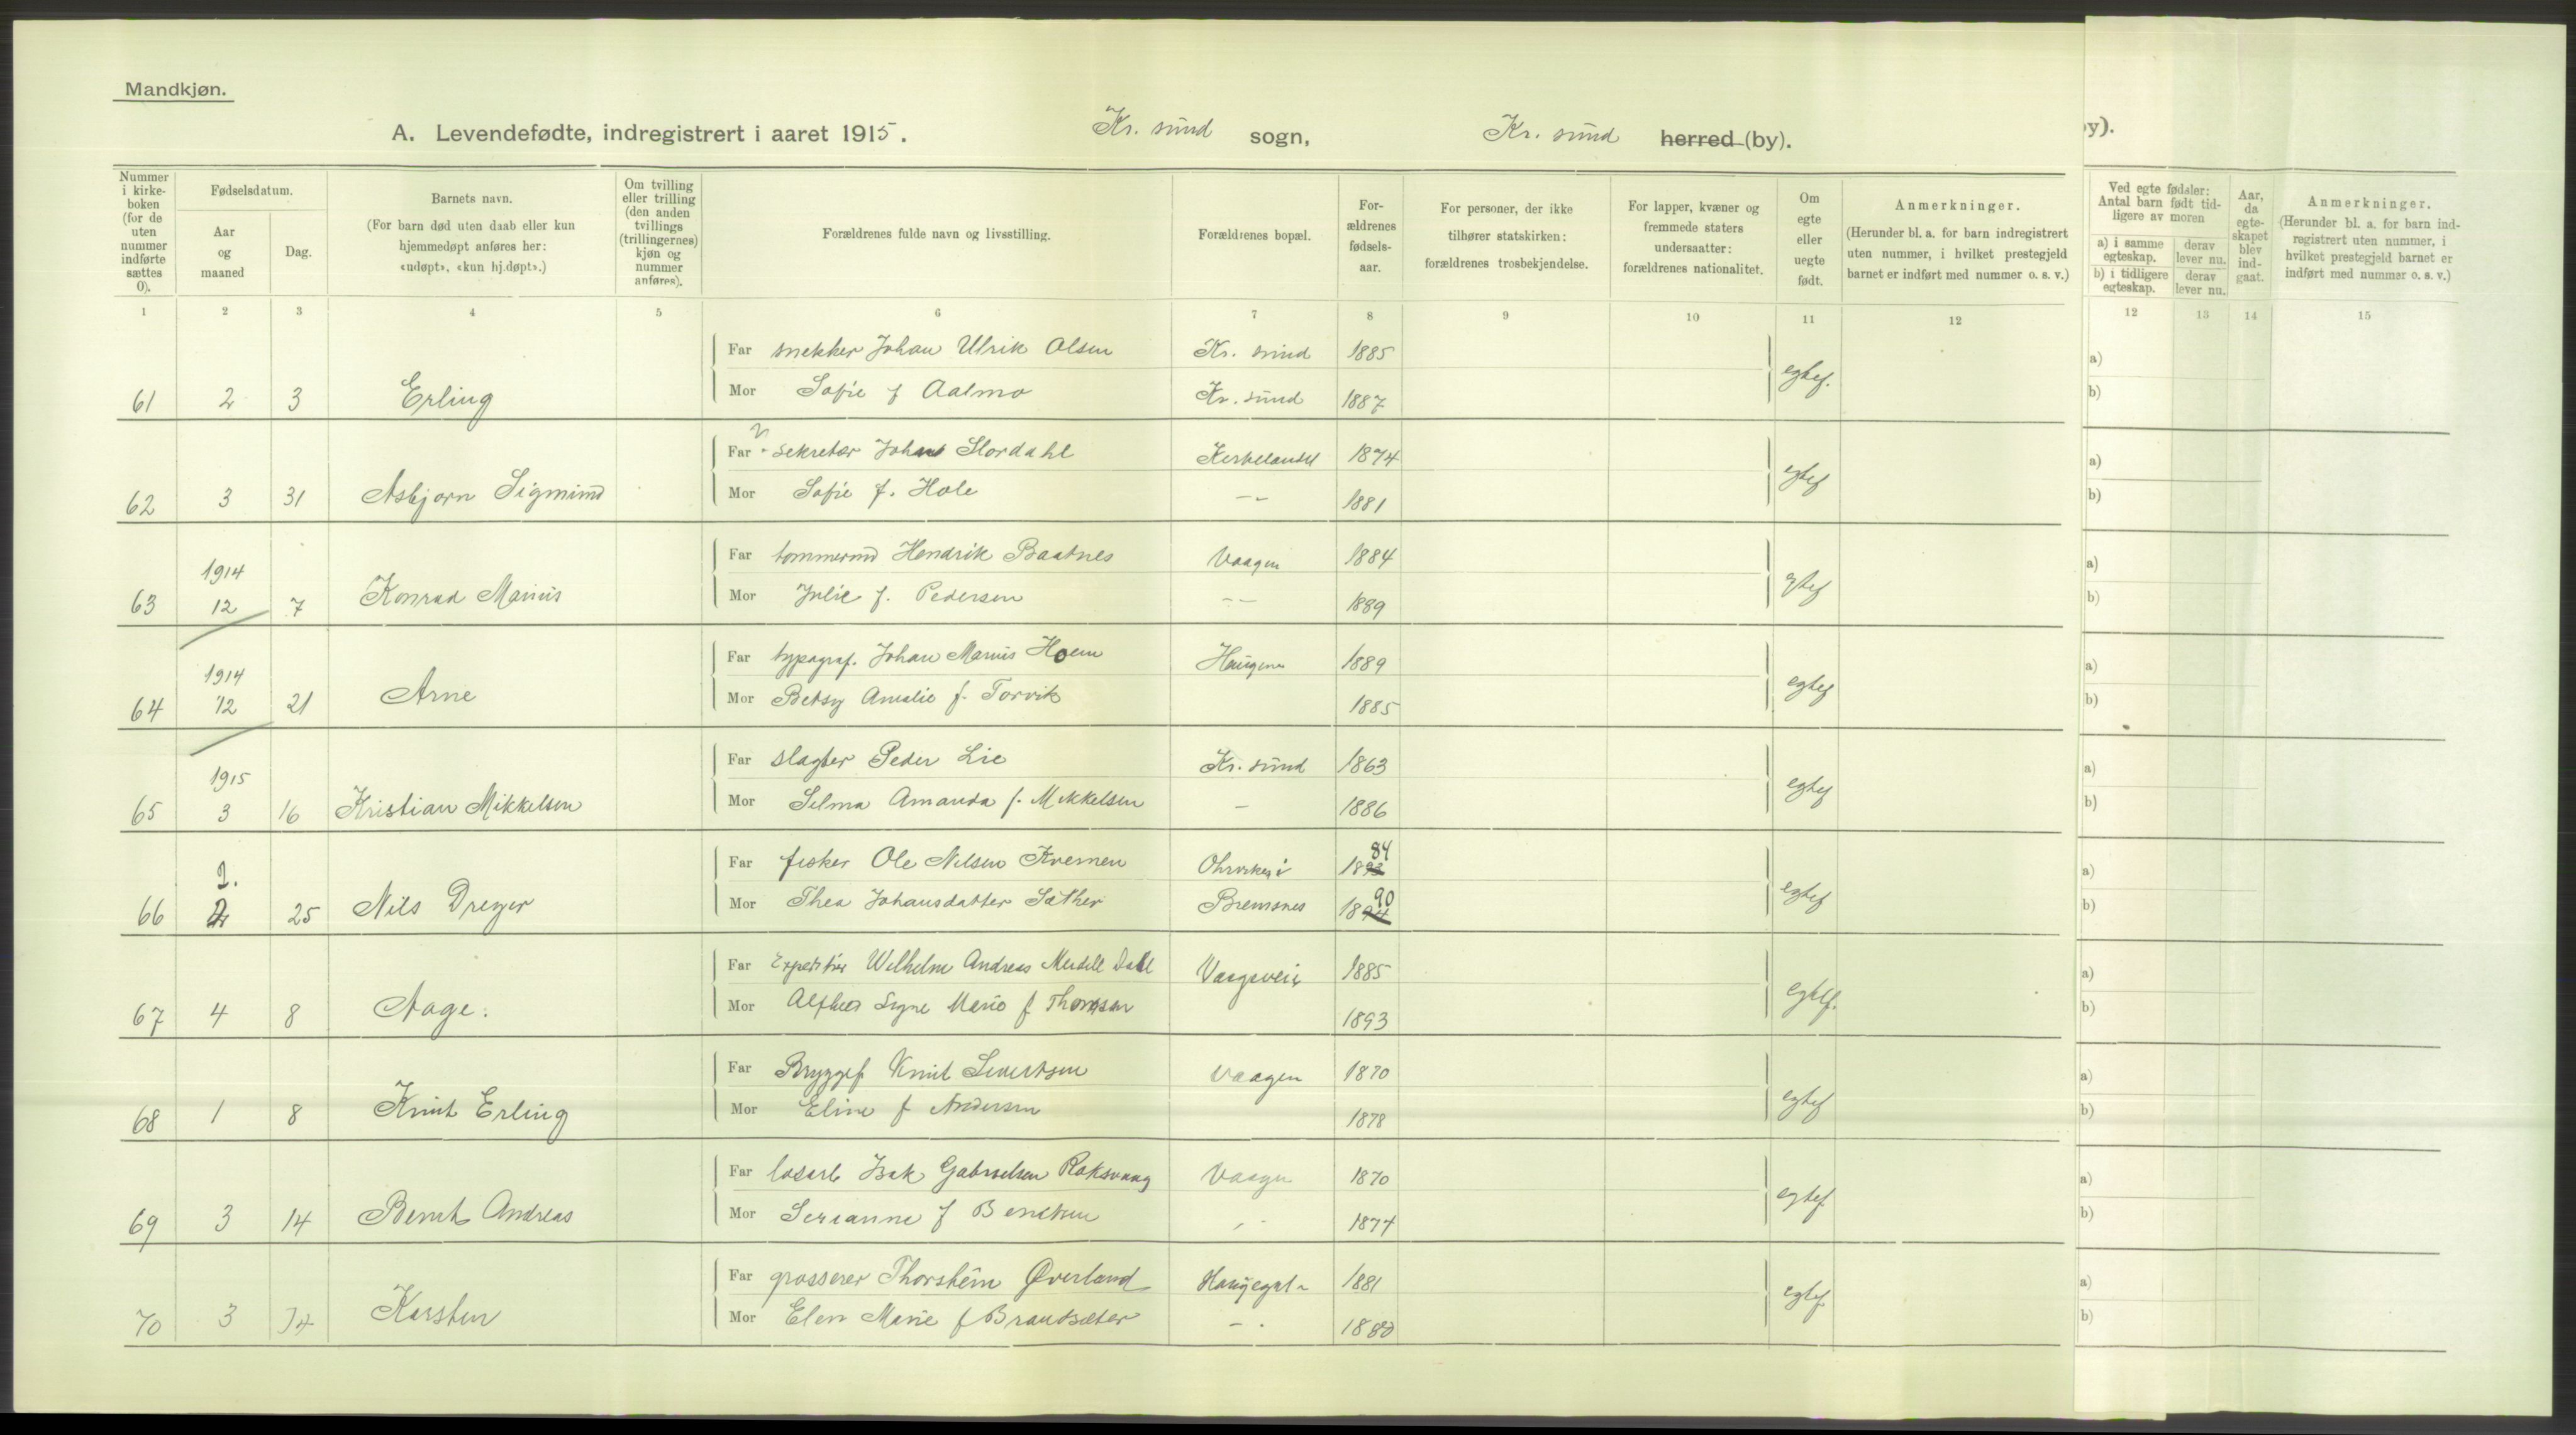 Mandkjøn.
A. Levendefødte, indregistrert i aaret 1915. Kr. sund sogn, Kr. sund herred (by).
y).
Nummer i kirkeboken (for de uten nummer indførte sættes 0).
Fødselsdatum.
Aar og maaned
Dag.
Barnets navn.
(For barn død uten daab eller kun hjemmedøpt anføres her: «udøpt», «kun hj.døpt».)
Om tvilling eller trilling (den anden tvillings (trillingernes) kjøn og nummer anføres).
Forældrenes fulde navn og livsstilling.
Forældrenes bopæl.
Forældrenes fødselsaar.
For personer, der ikke tilhører statskirken: forældrenes trosbekjendelse.
For lapper, kvæner og fremmede staters undersaatter: forældrenes nationalitet.
Om egte eller uegte født.
Anmerkninger.
(Herunder bl. a. for barn indregistrert uten nummer, i hvilket prestegjeld barnet er indført med nummer o. s. v.)
Ved egte fødsler: Antal barn født tidligere av moren
a) i samme egteskap. derav lever nu.
b) i tidligere egteskap. derav lever nu.
Aar, da egteskapet blev indgaat.
Anmerkninger.
(Herunder bl. a. for barn indregistrert uten nummer, i hvilket prestegjeld barnet er indført med nummer o. s. v.)
1 2 3 4 5 6 7 8 9 10 11 12 12 13 14 15
Far snekker Johan Ulrik Olsen Kr. sund 1885 a)
61 2 3 Erling Mor Sofie f Aalmo Kr. sund 1887 egtef. b)
Far sekretær Johans Stordahl Kirkelandet 1874 a)
62 3 31 Asbjørn Sigmund Mor Sofie f. Hole -- 1881 egtef b)
1914 Far tømmermd Hendrik Baatnes Vaagen 1884 a)
63 12 7 Konrad Marius Mor Julie f. Pedersen -- 1889 egtef b)
1914 Far typograf. Johan Marius Hoem Haugen 1889 a)
64 12 21 Arne Mor Betsy Amalie f. Torvik 1885 egtef b)
1915 Far slagter Peder Lie Kr. sund 1863 a)
65 3 16 Kristian Mikkelsen Mor Selma Amanda f. Mikkelsen - 1886 egtef b)
2. Far fisker Ole Nilsen Kvernen 84 a)
66 2 25 Nils Dreyer Mor Thea Johansdatter Sæther Bremsnes 90 egtef b)
Far Expeditør Wilhelm Andreas Meidell Dahl Vaagevei 1885 a)
67 4 8 Aage. Mor Signe Marie f Thomsen 1893 egtef. b)
Far Bryggef Knut Sivertsen Vaagen 1870 a)
68 1 8 Knut Erling Mor Eline f Andersen 1878 egtef b)
Far løsarb Isak Gabrielsen Roksvaag Vaagen 1870 a)
69 3 14 Bernt Andreas Mor Serianne f Bentsen 1874 egtef. b)
Far grosserer Thorstein Øverland Haugegat 1881 a)
70 3 14 Karsten Mor Elen Marie f Brandsæter - 1880 egtef. b)